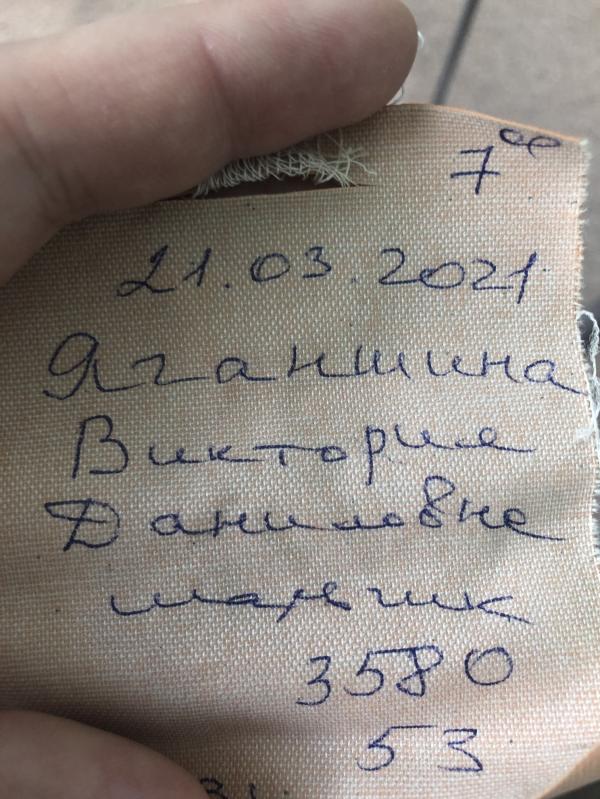 7⁰⁰
21.03.2021
Яганшина
Виктория
Даниловна
мальчик
3580
53